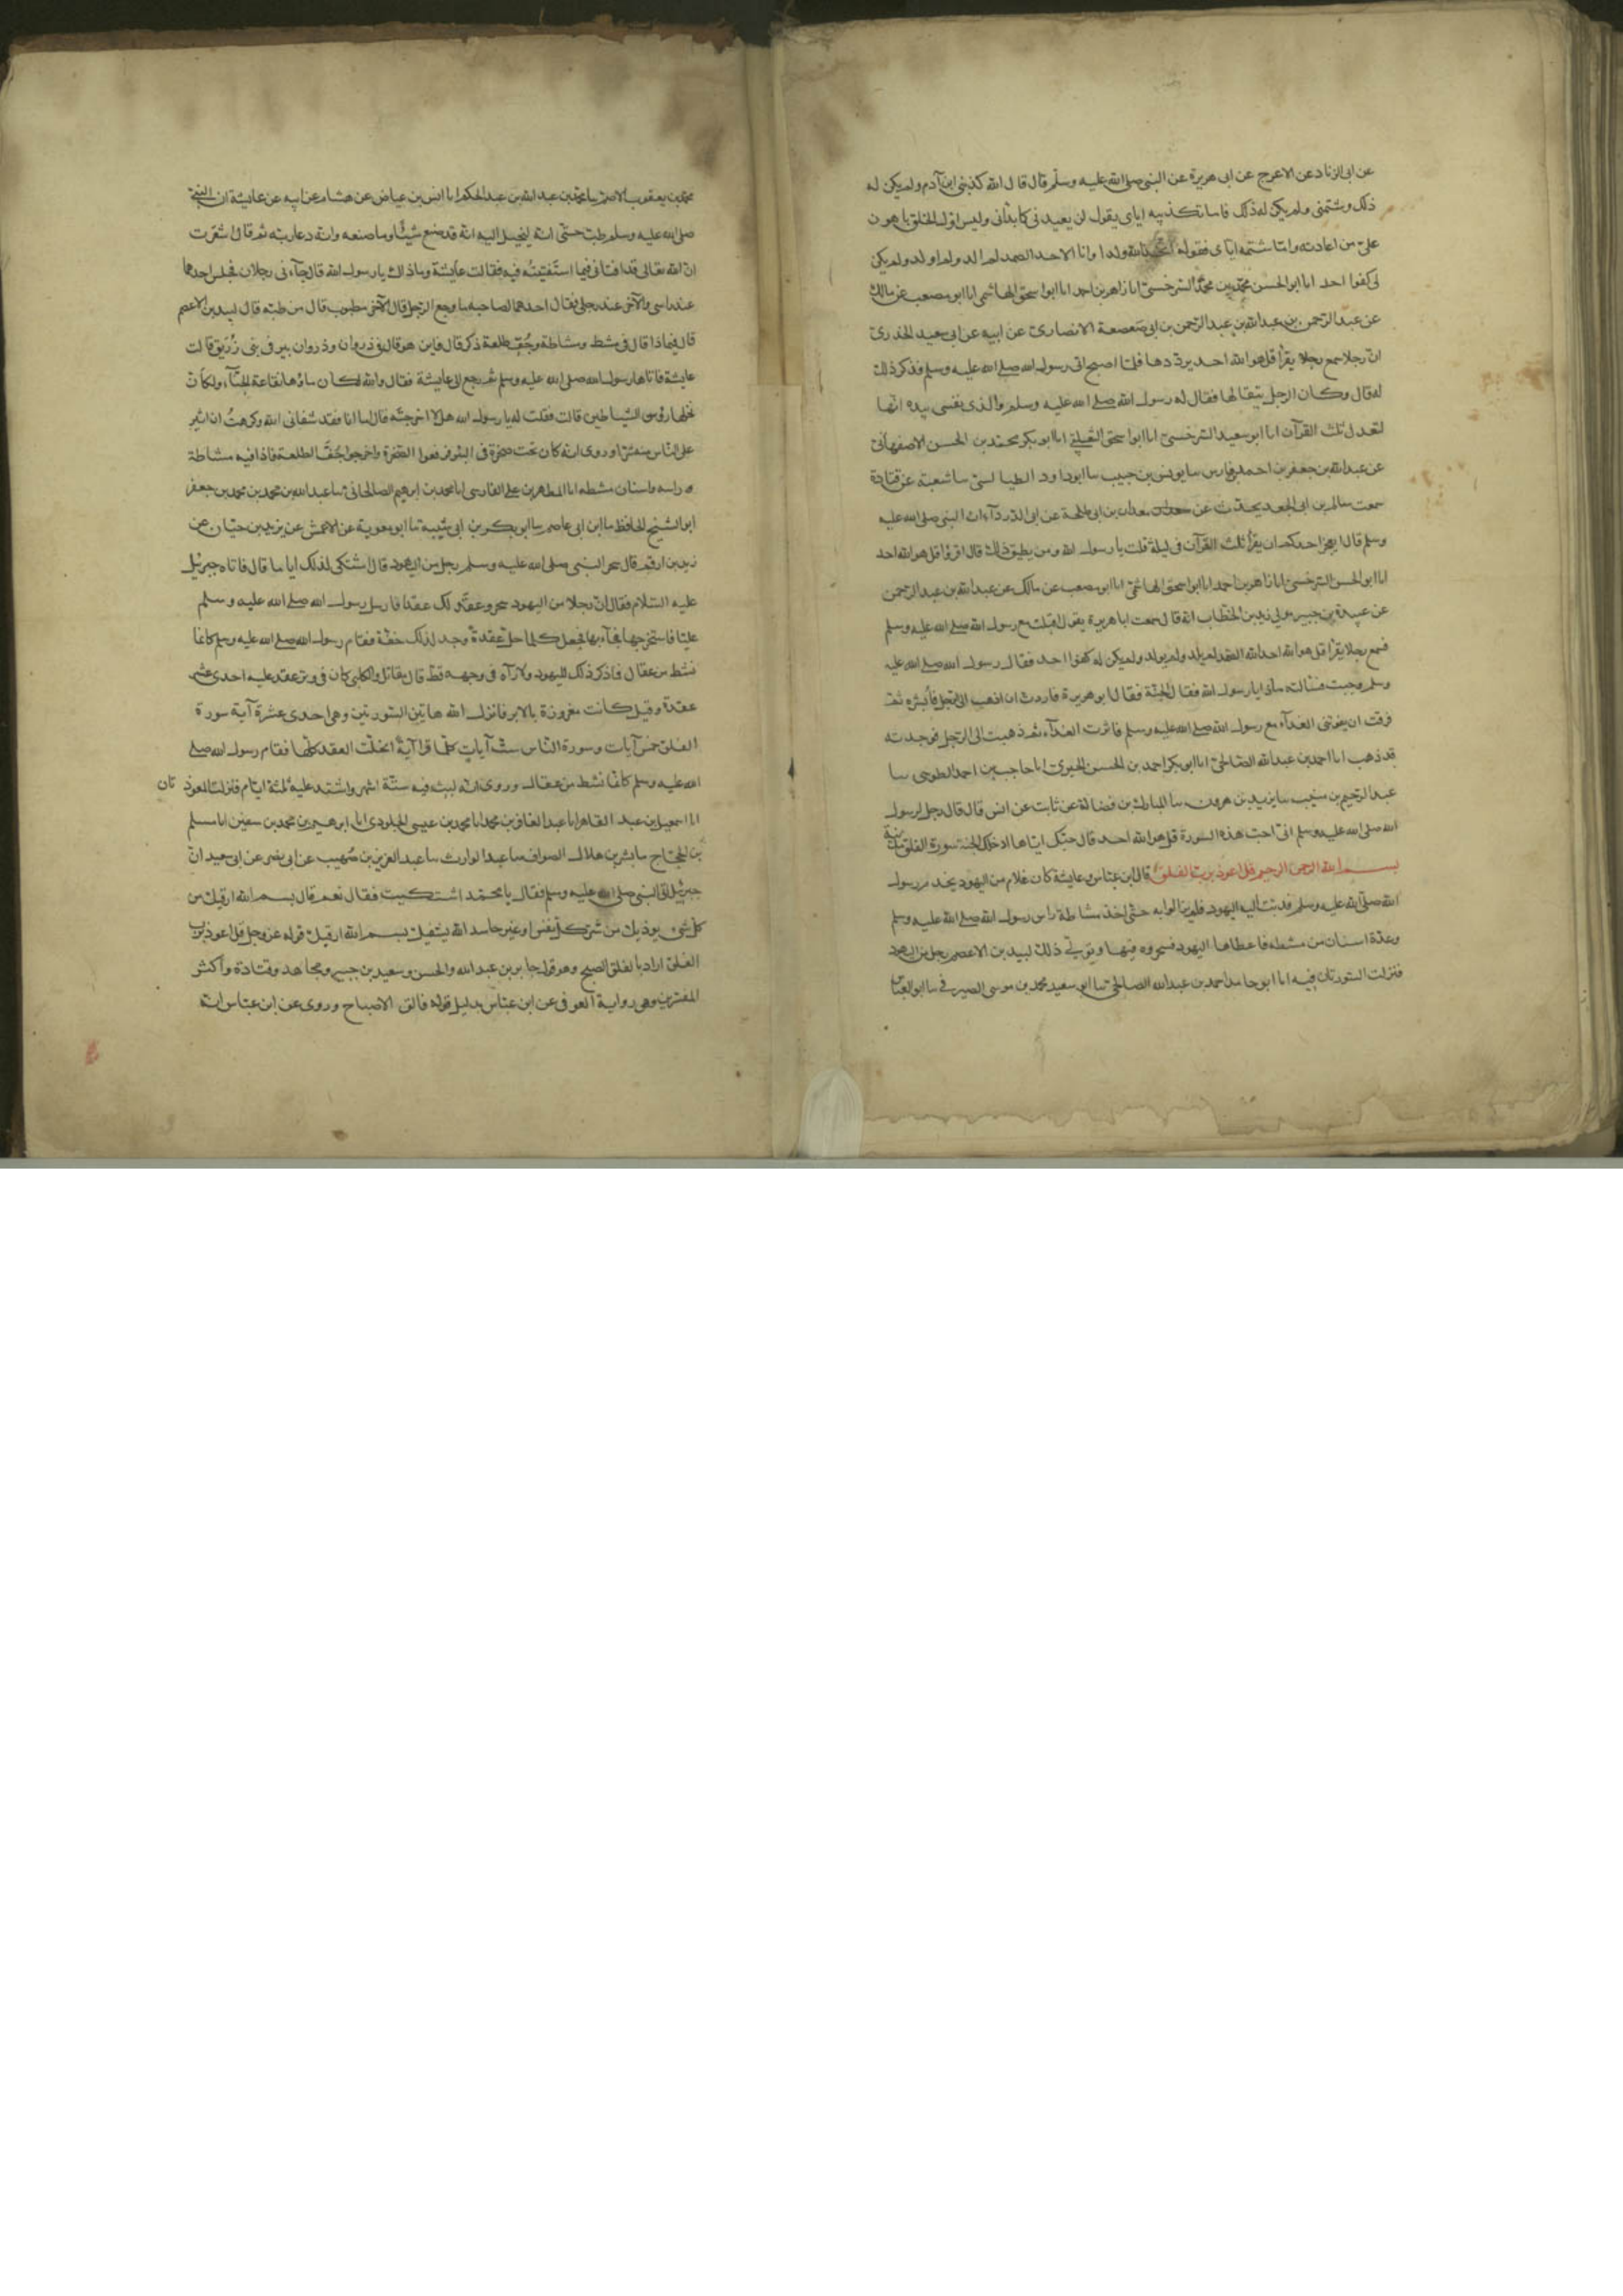 عن ابى الزناد عن الاعرج عن ابى هريرة عن النبى صلى الله عليه وسلم قال قال الله كذبنى ابن آدم ولم يكن له
ذلك وشتمنى ولم يكن له ذلك فاما تكذيبه اياى يقول لن يعيدنى كما بدأنى وليس اول الخلق باهون
علىّ من اعادته واما شتمه اياى فقوله اتخذ الله ولدا وانا الاحد الصمد لم الد ولم اولد ولم يكن
لى كفوا احد انا ابو الحسن محمد بن محمد السرخسى انا زاهر بن احمد انا ابو اسحق الهاشمى انا ابو مصعب عن مالك
عن عبد الرحمن بن عبد الله بن عبد الرحمن بن ابى صعصعة الانصارى عن ابيه عن ابى سعيد الخدرى
ان رجلا سمع رجلا يقرأ قل هو الله احد يرددها فلما اصبح اتى رسول الله صلى الله عليه وسلم فذكر ذلك
له قال وكان الرجل يتقالها فقال له رسول الله صلى الله عليه وسلم والذى نفسى بيده انها
لتعدل ثلث القرآن انا ابو سعيد السرخسى انا ابو اسحق الثعلبى انا ابو بكر محمد بن الحسن الاصفهانى
عن عبد الله بن جعفر بن احمد بن فارس سا يونس بن حبيب سا ابو داود الطيالسى سا شعبة عن قتادة
سمعت سالم بن ابى الجعد يحدث عن معدان بن ابى طلحة عن ابى الدرداء ان النبى صلى الله عليه
وسلم قال ايعجز احدكم ان يقرأ ثلث القرآن فى ليلة قلت يا رسول الله ومن يطيق ذلك قال اقرؤا قل هو الله احد
انا ابو الحسن السرخسى انا زاهر بن احمد انا ابو اسحق الهاشمى انا ابو مصعب عن مالك عن عبد الله بن عبد الرحمن
عن عبيد بن جبير مولى زيد بن الخطاب انه قال سمعت ابا هريرة يقول اقبلت مع رسول الله صلى الله عليه وسلم
فسمع رجلا يقرأ قل هو الله احد الله الصمد لم يلد ولم يولد ولم يكن له كفوا احد فقال رسول الله صلى الله عليه
وسلم وجبت فسالته ماذا يا رسول الله فقال الجنة فقال ابو هريرة فاردت ان اذهب الى الرجل فابشره ثم
فرقت ان يفوتنى الغداء مع رسول الله صلى الله عليه وسلم فاثرت الغداء ثم ذهبت الى الرجل فوجدته
قد ذهب انا احمد بن عبد الله الصالحى انا ابو بكر احمد بن الحسن الحيرى انا حاجب بن احمد الطوسى سا
عبد الرحيم بن منيب سا يزيد بن هرون سا المبارك بن فضالة عن ثابت عن انس قال قال رجل لرسول
الله صلى الله عليه وسلم انى احب هذه السورة قل هو الله احد قال حبك اياها ادخلك الجنة سورة الفلق مدنية
بسم الله الرحمن الرحيم قل اعوذ برب الفلق قال ابن عباس وعايشة كان غلام من اليهود يخدم رسول
الله صلى الله عليه وسلم فدبت اليه اليهود فلم يزالوا به حتى اخذ مشاطة راس رسول الله صلى الله عليه وسلم
وعدة اسنان من مشطه فاعطاها اليهود فسحروه فيها وتولى ذلك لبيد بن الاعصم رجل من اليهود
فنزلت السورتان فيه انا ابو حامد احمد بن عبد الله الصالحى سا ابو سعيد محمد بن موسى الصيرفى سا ابو العباس
محمد بن يعقوب الاصم سا محمد بن عبد الله بن عبد الحكم انا انس بن عياض عن هشام عن ابيه عن عايشة ان النبى
صلى الله عليه وسلم طب حتى انه ليخيل اليه انه قد صنع شيئا وما صنعه وانه دعا ربه ثم قال اشعرت
ان الله تعالى قد افتانى فيما استفتيته فيه فقالت عايشة وما ذاك يا رسول الله قال جآءنى رجلان فجلس احدهما
عند راسى والآخر عند رجلى فقال احدهما لصاحبه ما وجع الرجل قال الآخر مطبوب قال من طبه قال لبيد بن الاعصم
قال فيماذا قال فى مشط ومشاطة وجف طلعة ذكر قال فاين هو قال فى ذروان وذروان بير فى بنى زريق قالت
عايشة فاتاها رسول الله صلى الله عليه وسلم ثم رجع الى عايشة فقال والله لكان ماؤها نقاعة الحنآء ولكأن
نخلها رؤس الشياطين قالت فقلت له يا رسول الله هلا اخرجته قال اما انا فقد شفانى الله وكرهت ان اثير
على الناس منه شرا وروى انه كان تحت صخرة فى البئر فرفعوا الصخرة واخرجوا جف الطلعة فاذا فيه مشاطة
راسه واسنان مشطه انا المطهر بن على الفارسى انا محمد بن ابرهيم الصالحانى سا عبد الله بن محمد بن جعفر
ابو الشيخ الحافظ سا ابن ابى عاصم سا ابو بكر بن ابى شيبة سا ابو معوية عن الاعمش عن يزيد بن حيان عن
زيد بن ارقم قال سحر النبى صلى الله عليه وسلم رجل من اليهود قال فاشتكى لذلك اياما قال فاتاه جبريل
عليه السلام فقال ان رجلا من اليهود سحرك وعقد لك عقدا فارسل رسول الله صلى الله عليه وسلم
عليا فاستخرجها فجآء بها فجعل كلما حل عقدة وجد لذلك خفة فقام رسول الله صلى الله عليه وسلم كانما
نشط من عقال فما ذكر ذلك لليهود ولا رآه فى وجهه قط قال مقاتل والكلبى كان فى وتر عقد عليه احدى عشر
عقدة وقيل كانت مغروزة بالابر فانزل الله هاتين السورتين وهى احدى عشرة آية سورة
الفلق خمس آيات وسورة الناس ست آيات كلما قرا آية انحلت العقد كلها فقام رسول الله صلى
الله عليه وسلم كانما نشط من عقال وروى انه لبث فيه ستة اشهر واشتد عليه ثلثة ايام فنزلت المعوذ تان
انا اسمعيل بن عبد القاهر انا عبد الغافر بن محمد انا محمد بن عيسى الجلودى انا ابرهيم بن محمد بن سفين انا مسلم
بن الحجاج سا بشر بن هلال الصواف سا عبد الوارث سا عبد العزيز بن صهيب عن ابى نضر عن ابى سعيد ان
جبريل اتى النبى صلى الله عليه وسلم فقال يا محمد اشتكيت فقال نعم قال بسم الله ارقيك من
كل شىء يوذيك من شر كل نفس او عين حاسد الله يشفيك بسم الله ارقيك قوله عز وجل قل اعوذ برب
الفلق اراد بالفلق الصبح وهو قول جابر بن عبد الله والحسن وسعيد بن جبير ومجاهد وقتادة واكثر
المفسرين وهى رواية العوفى عن ابن عباس بدليل قوله فالق الاصباح وروى عن ابن عباس انه